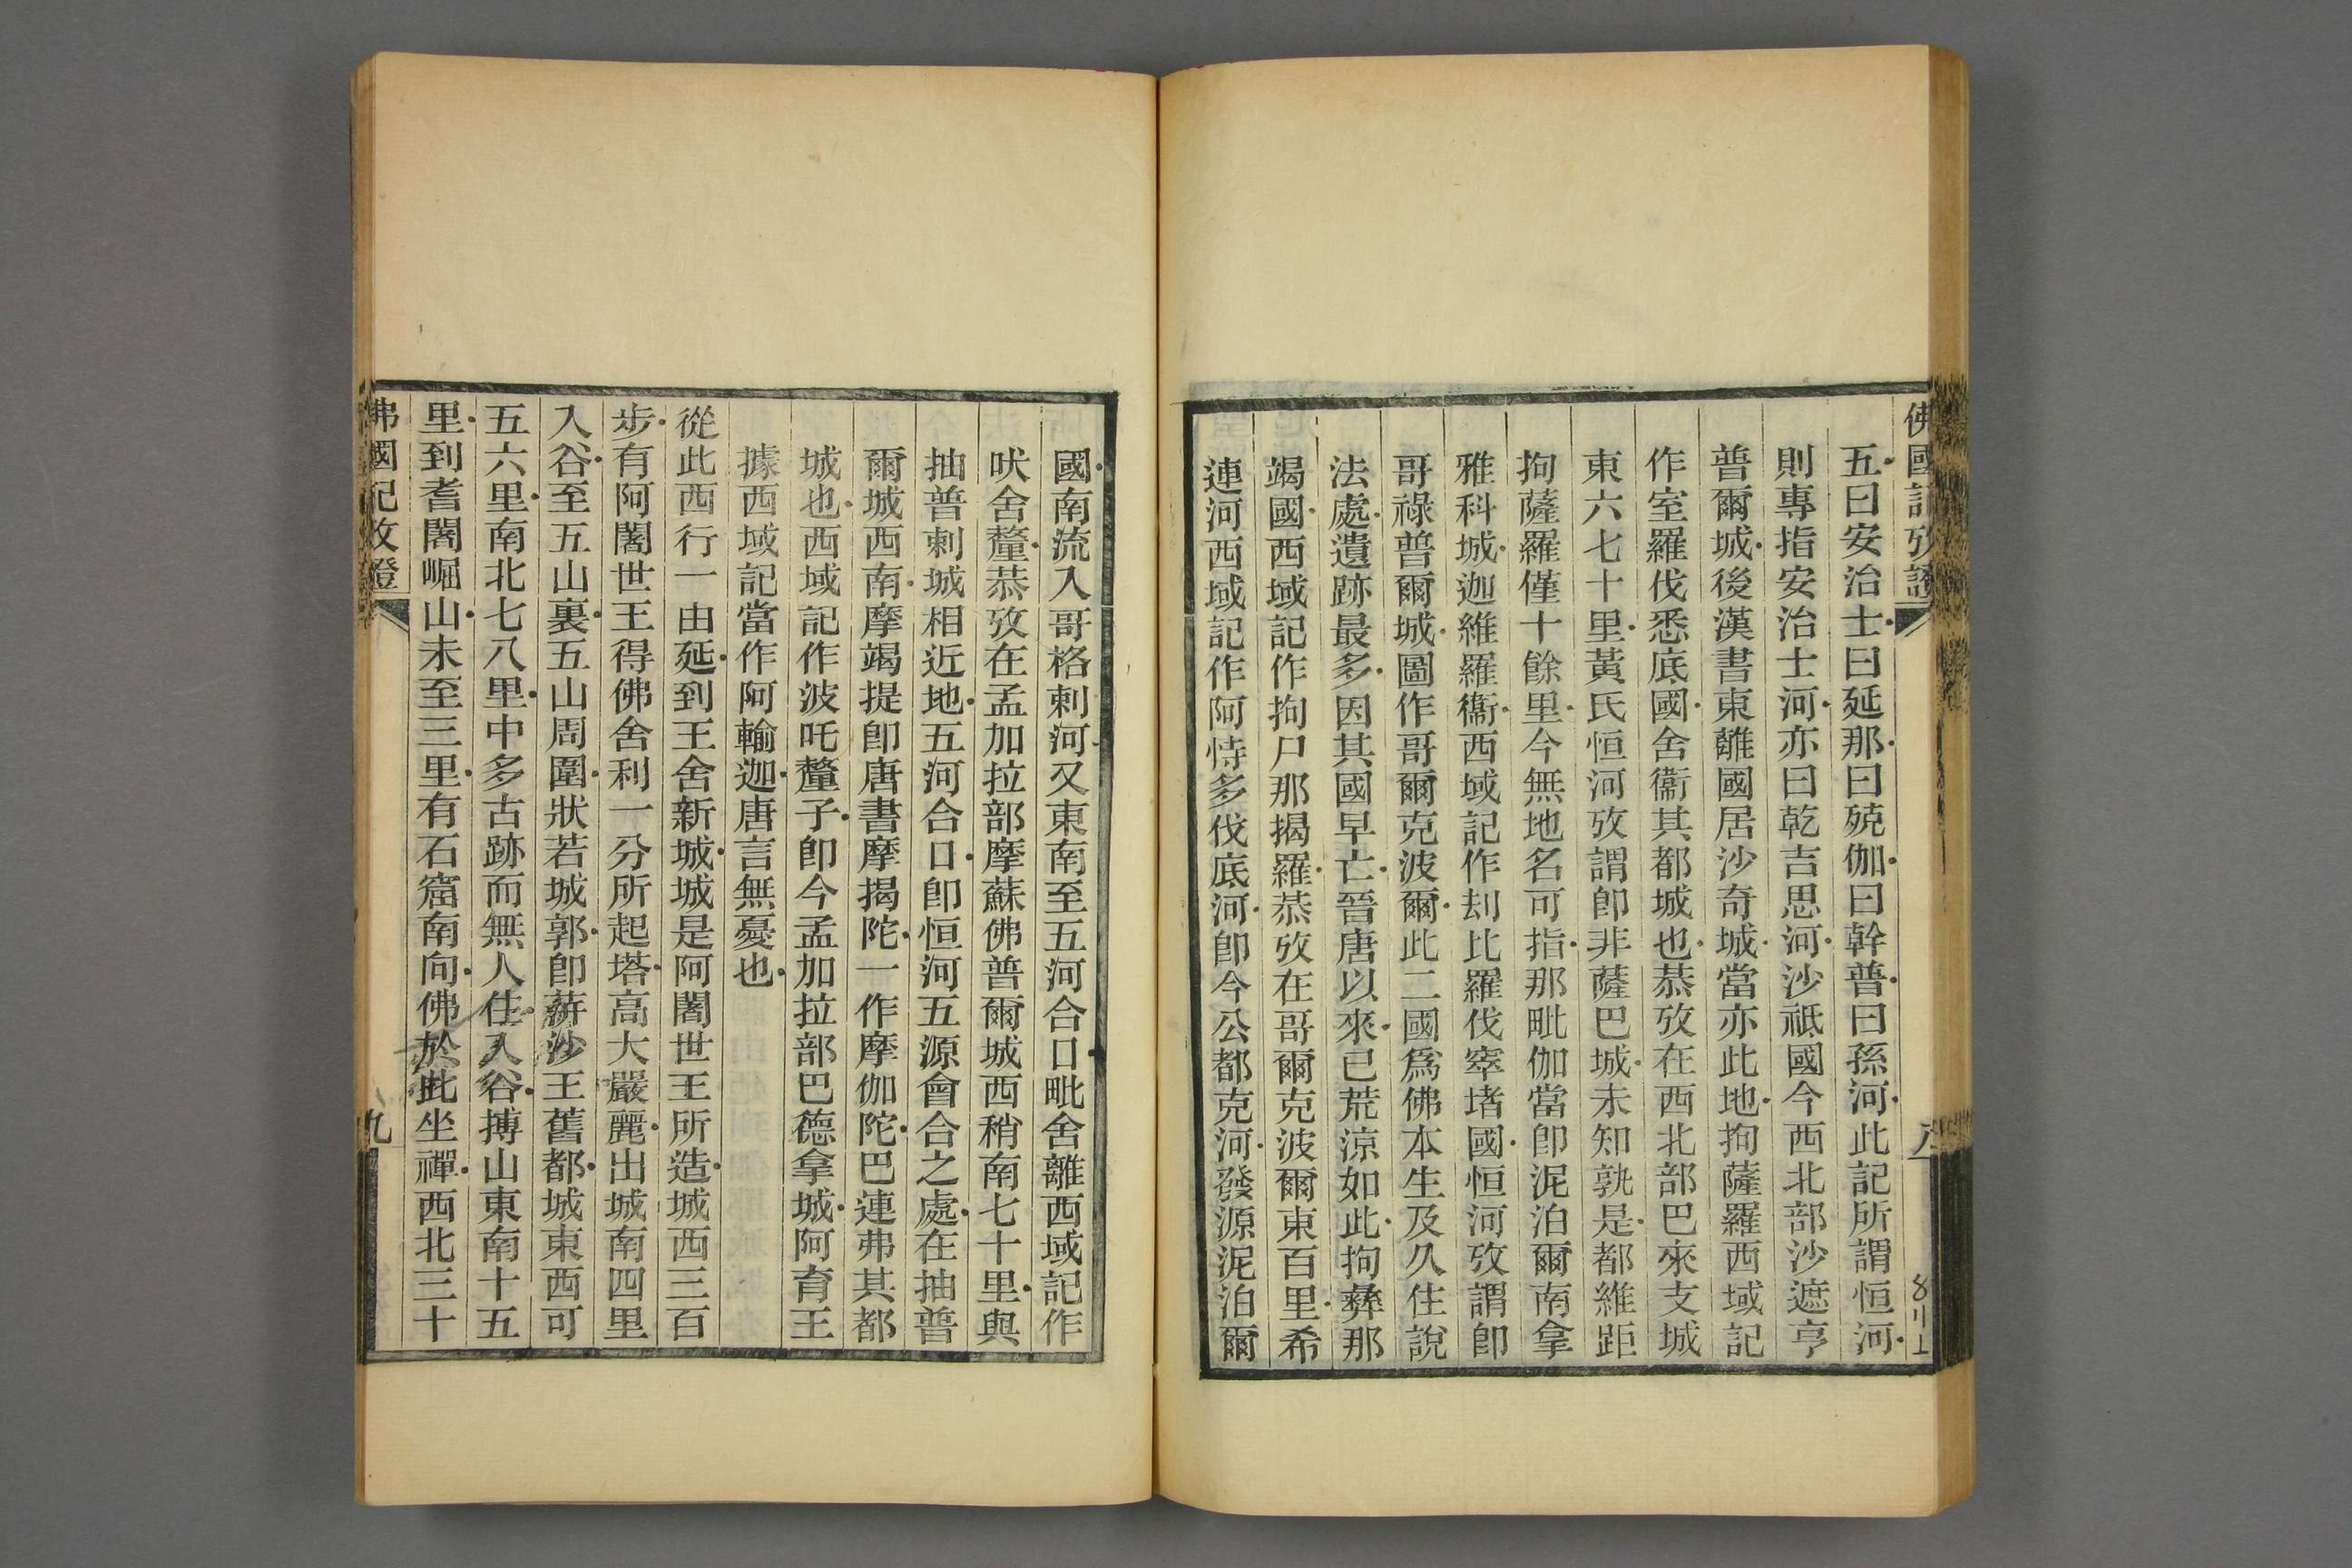 佛國記攷證
八
五曰安治士曰延那曰殑伽曰幹普曰孫河此記所謂恒河
則專指安治士河亦曰乾吉思河沙祇國今西北部沙遮亨
普爾城後漢書東離國居沙奇城當亦此地拘薩羅西域記
作室羅伐悉底國舍衞其都城也恭攷在西北部巴來支城
東六七十里黃氏恒河攷謂卽非薩巴城未知孰是都維距
拘薩羅僅十餘里今無地名可指那毗伽當卽泥泊爾南拿
雅科城迦維羅衞西域記作刦比羅伐窣堵國恒河攷謂卽
哥祿普爾城圖作哥爾克波爾此二國爲佛本生及久住說
法處遺跡最多因其國早亡晉唐以來已荒涼如此拘彝那
竭國西域記作拘尸那揭羅恭攷在哥爾克波爾東百里希
連河西域記作阿恃多伐底河卽今公都克河發源泥泊爾
國南流入哥格剌河又東南至五河合口毗舍離西域記作
吠舍釐恭攷在孟加拉部摩蘇佛普爾城西稍南七十里與
抽普剌城相近地五河合口卽恒河五源會合之處在抽普
爾城西南摩竭提卽唐書摩揭陀一作摩伽陀巴連弗其都
城也西域記作波吒釐子卽今孟加拉部巴德拿城阿育王
據西域記當作阿輸迦唐言無憂也
從此西行一由延到王舍新城城是阿闍世王所造城西三百
步有阿闍世王得佛舍利一分所起塔高大嚴麗出城南四里
入谷至五山裏五山周圍狀若城郭卽蓱沙王舊都城東西可
五六里南北七八里中多古跡而無人住入谷搏山東南十五
里到耆闍崛山未至三里有石窟南向佛於此坐禪西北三十
佛國記攷證
九